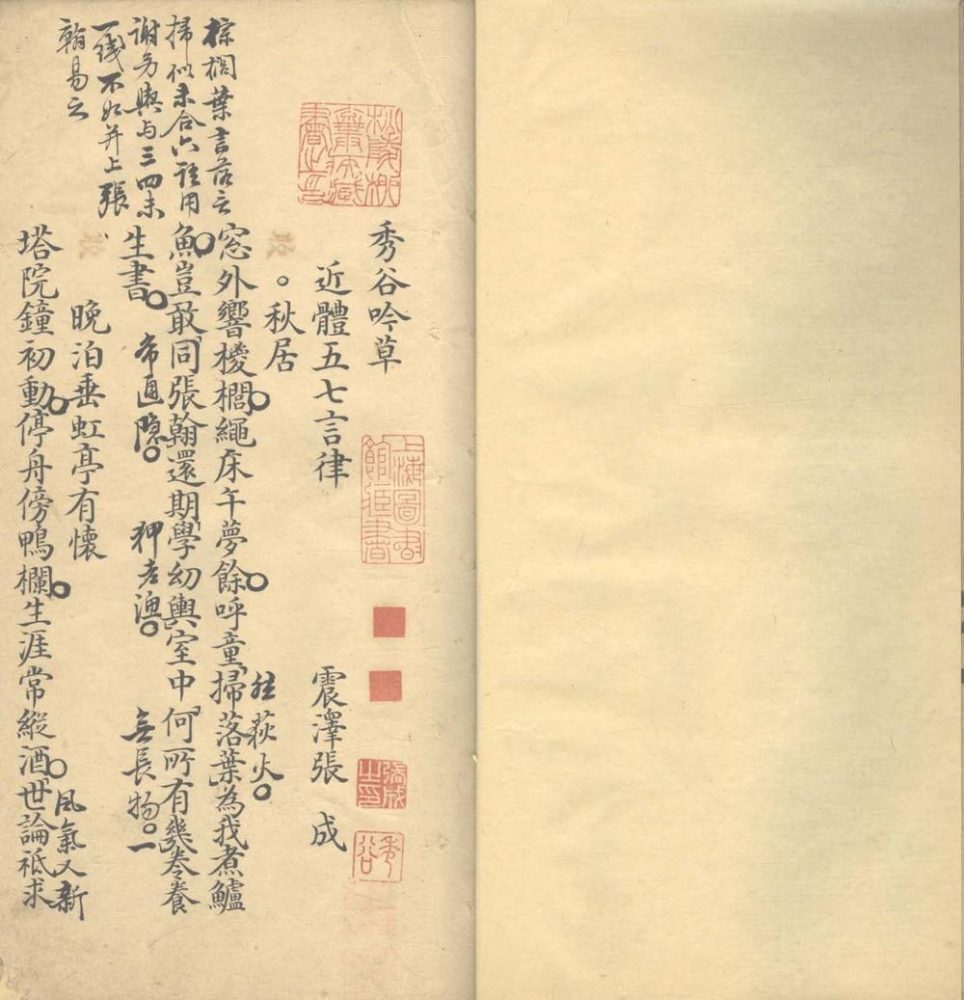 秀谷吟草
近體五七言律
震澤張 成
。秋居
窓外響椶櫚繩床午夢餘呼童掃落葉為我煮鱸
魚豈敢同張翰還期學幼輿室中何所有幾卷養
生書
晚泊垂虹亭有懷
塔院鐘初動停舟傍鴨欄生涯常縱酒世論祗求
棕櫚葉言落云
掃似未合六語用
與与三四未
一綫不如并上張
翰易云
荻火
無長物
風氣又新
上海圖書館藏書
秀谷